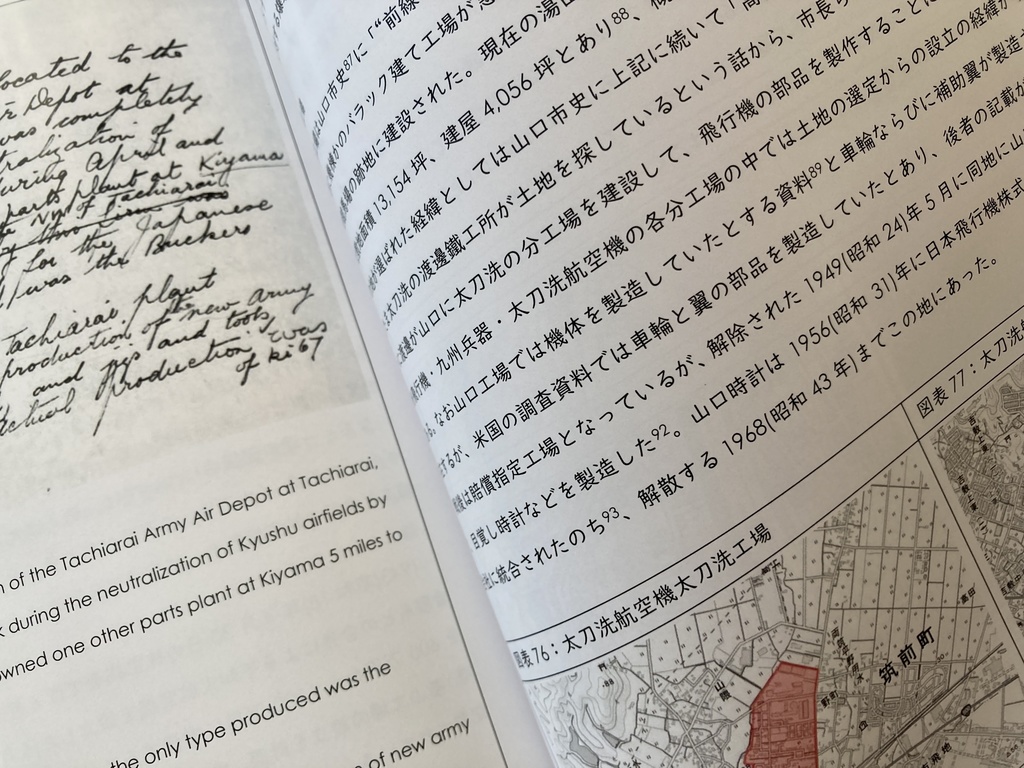 located to the
Depot at
was completely
tralization of
during April and
parts plant at Kiyama
of Tachiarai
for the Japanese
was the Buckers
Tachiarai plant
production of new army
and jigs and tools,
production was
of Ki 67
n of the Tachiarai Army Air Depot at Tachiarai,
k during the neutralization of Kyushu airfields by
owned one other parts plant at Kiyama 5 miles to
the only type produced was the
of new army
は山口市史87に「"前線
かのバラック建て工場が
場の跡地に建設された。現在の湯田
面積 13,154 坪、建屋 4,056 坪とあり88、
が選ばれた経緯としては山口市史に上記に続いて「
太刀洗の渡邊鐵工所が土地を探しているという話から、市長
渡邊が山口に太刀洗の分工場を建設して、飛行機の部品を製作することに
飛行機・九州兵器・太刀洗航空機の各分工場の中では土地の選定からの設立の経緯が
。なお山口工場では機体を製造していたとする資料89と車輪ならびに補助翼が製造
するが、米国の調査資料では車輪と翼の部品を製造していたとあり、後者の記載が
後は賠償指定工場となっているが、解除された 1949(昭和 24)年 5 月に同地に山
目覚し時計などを製造した92。山口時計は 1956(昭和 31)年に日本飛行機株式
に統合されたのち93、解散する 1968(昭和 43 年)までこの地にあった。
図表 76：太刀洗航空機太刀洗工場
図表 77：太刀洗
筑前町